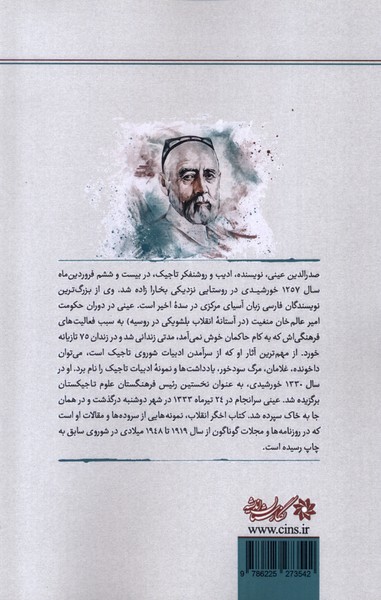 صدرالدین عینی، نویسنده، ادیب و روشنفکر تاجیک، در بیست و ششم فروردین‌ماه
سال ۱۲۵۷ خورشیدی در روستایی نزدیکی بخارا زاده شد. وی از بزرگ‌ترین
نویسندگان فارسی زبان آسیای مرکزی در سدهٔ اخیر است. عینی در دوران حکومت
امیر عالم‌خان منغیت (در آستانهٔ انقلاب بلشویکی در روسیه) به سبب فعالیت‌های
فرهنگی‌اش که به کام حاکمان خوش نمی‌آمد، مدتی زندانی شد و در زندان ۷۵ تازیانه
خورد. از مهم‌ترین آثار او که از سرآمدن ادبیات شوروی تاجیک است، می‌توان
داخونده، غلامان، مرگ سودخور، یادداشت‌ها و نمونهٔ ادبیات تاجیک را نام برد. او در
سال ۱۳۳۰ خورشیدی، به عنوان نخستین رئیس فرهنگستان علوم تاجیکستان
برگزیده شد. عینی سرانجام در ۲٤ تیرماه ۱۳۳۳ در شهر دوشنبه درگذشت و در همان
جا به خاک سپرده شد. کتاب اخگر انقلاب، نمونه‌هایی از سروده‌ها و مقالات او است
که در روزنامه‌ها و مجلات گوناگون از سال ۱۹۱۹ تا ۱۹٤۸ میلادی در شوروی سابق به
چاپ رسیده است.
www.cins.ir
9 786225 273542